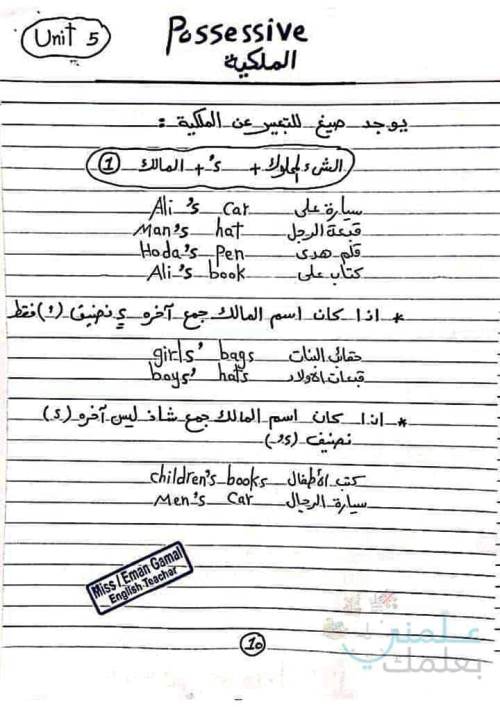 Unit 5
Possessive
الملكية
يوجد صيغ للتعبير عن الملكية :
① المالك + 's + الشئ المملوك
Ali's car سيارة على
Man's hat قبعة الرجل
Hoda's pen قلم هدى
Ali's book كتاب على
* اذا كان اسم المالك جمع آخره s نضيف (') فقط
girls' bags حقائب البنات
boys' hats قبعات الأولاد
* اذا كان اسم المالك جمع شاذ ليس آخره (s)
نضيف ('s)
children's books كتب الأطفال
Men's car سيارة الرجال
Miss / Eman Gamal
English Teacher
علمني
بعلمك
10